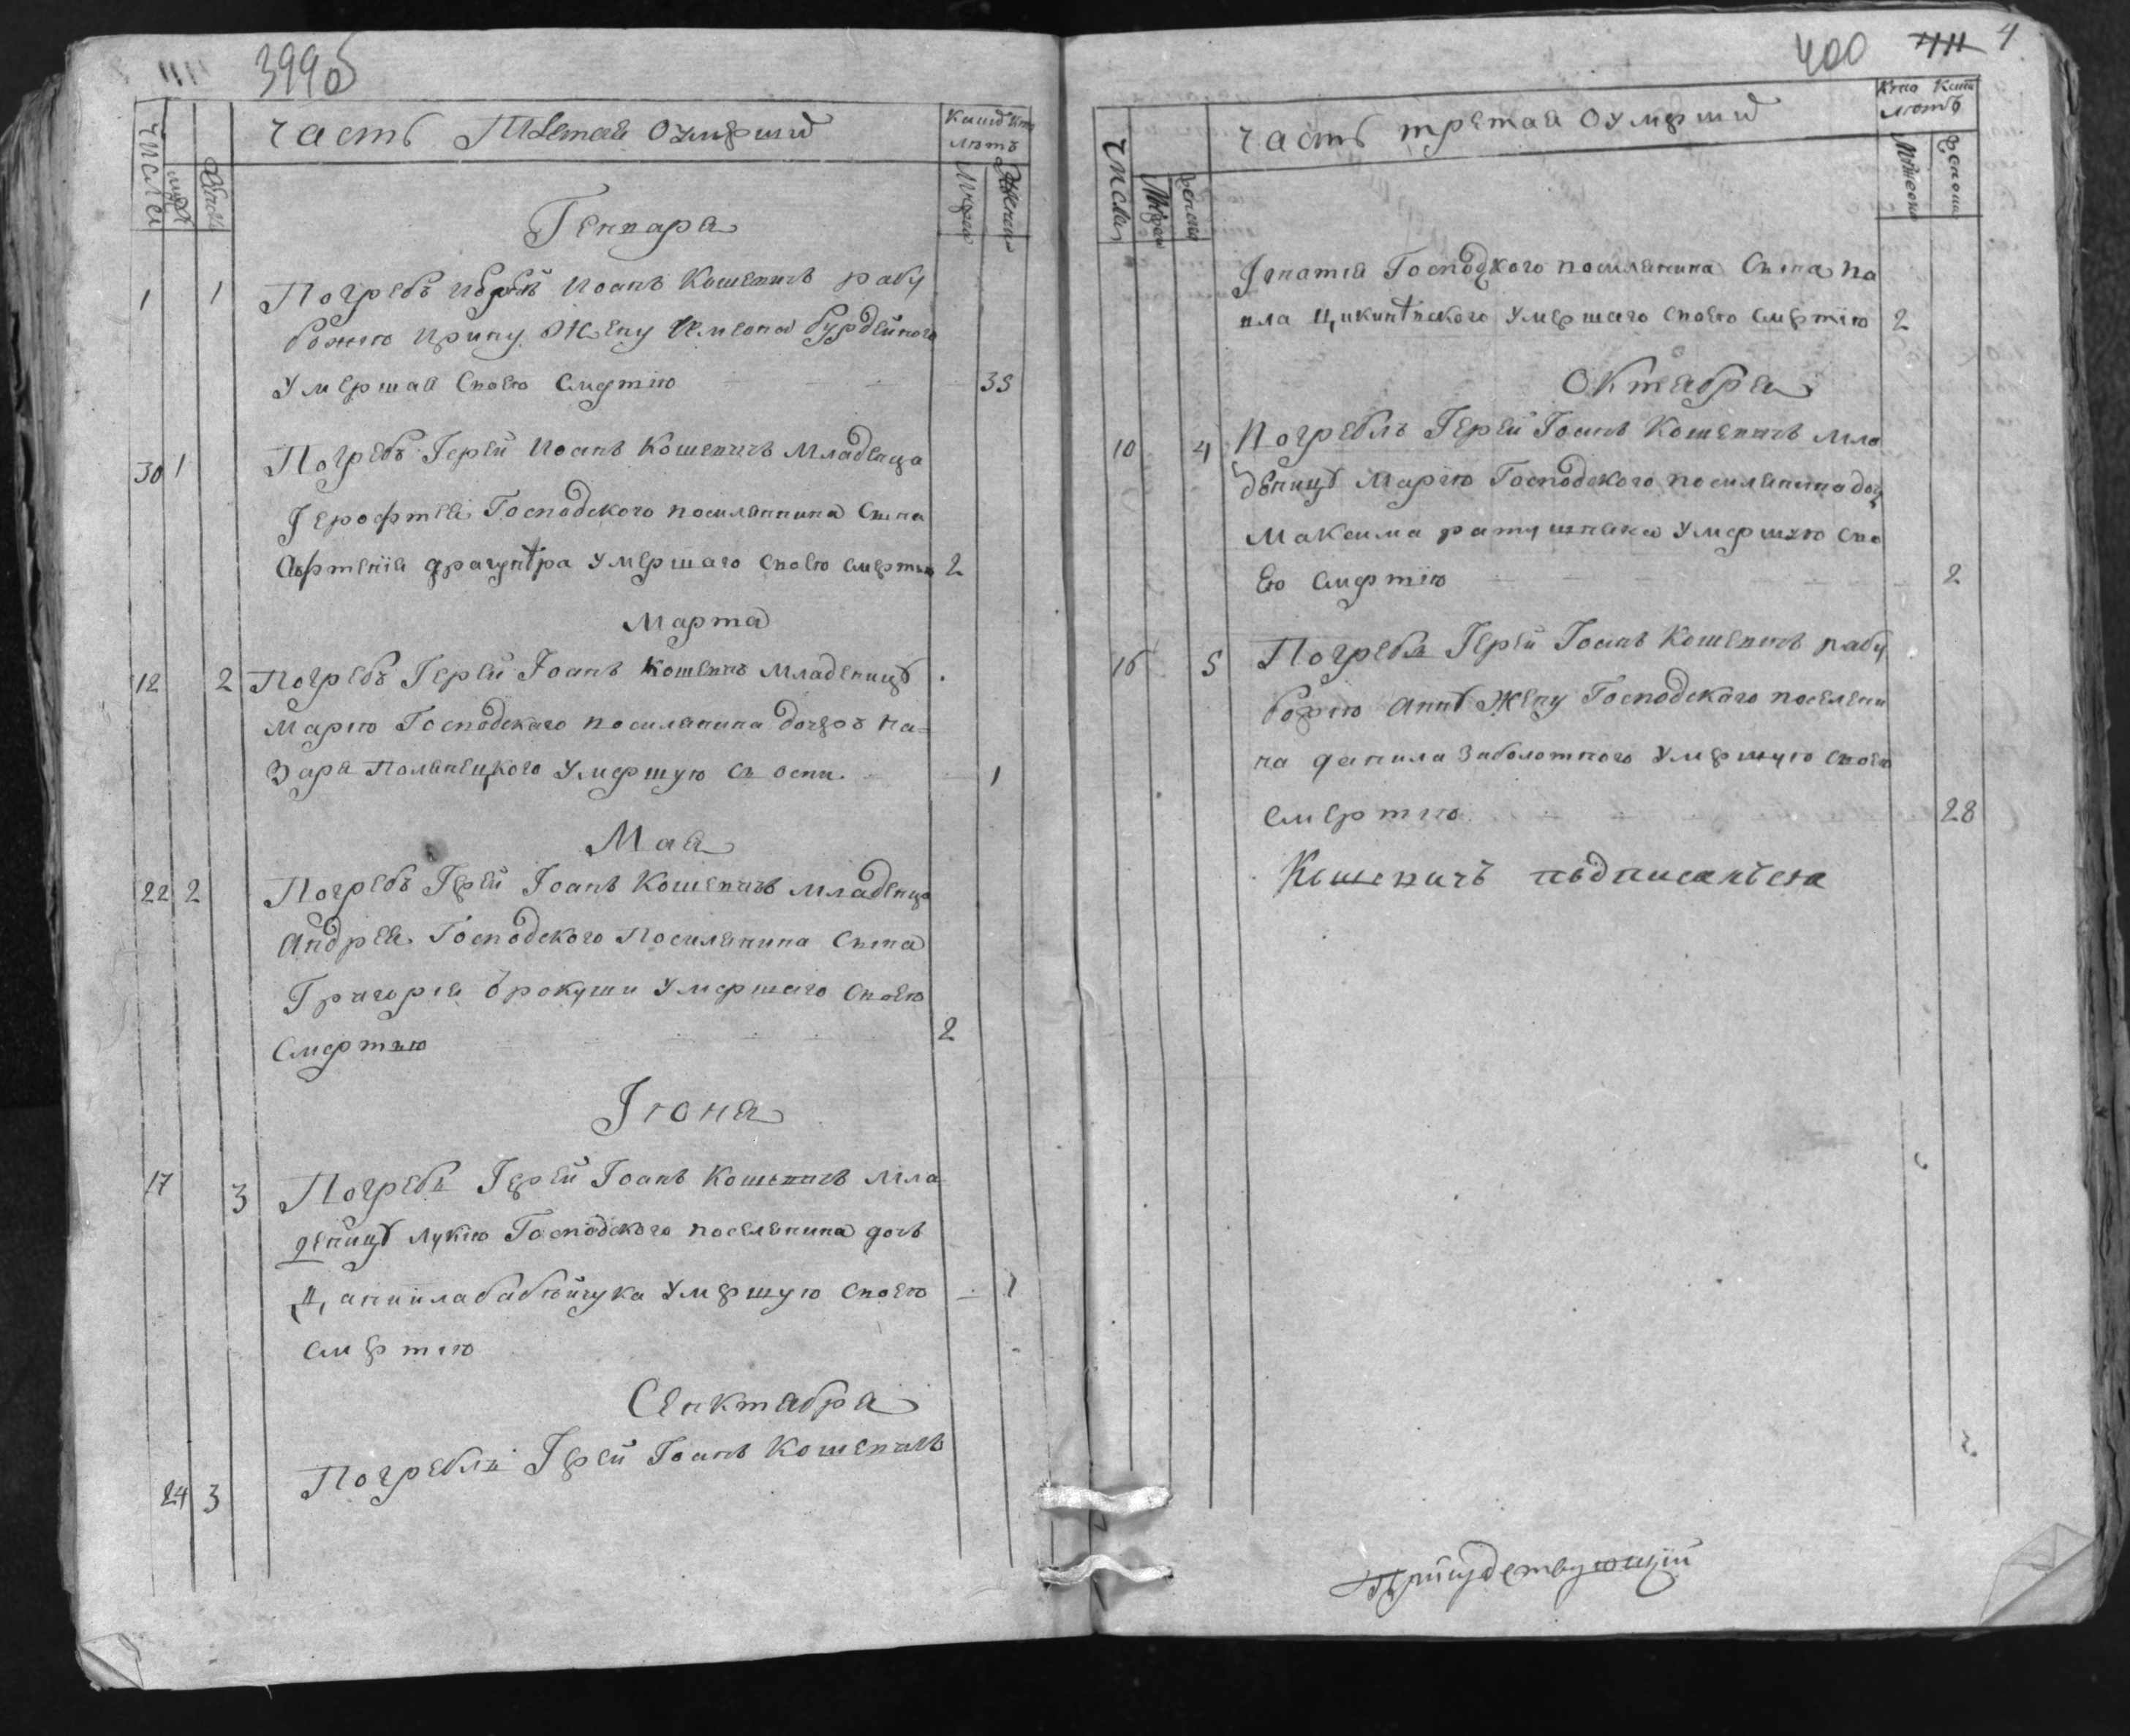 399об
часть Третая Оумерши
Числа
Кто кто
лѣтъ
Генкаря
1 1 Погребъ Иерей Иоанъ Кошевичъ рабу
божію Ирину Жену Симеона бурдейного
Умершая своею смертію 35
30 1 Погребъ Іерей Иоанъ Кошевичъ Младенца
Іерофтея Господского посилянина Сына
Артенія драгунтра Умершаго своею смертию 2
Марта
12 2 Погребъ Іерей Іоанъ Кошевичъ Младеницѣ
Марію Господскаго посилянина дочерь На=
Зара Полянецкого Умершую съ оспи. 1
Мая
22 2 Погребъ Іерей Іоанъ Кошевичъ младенца
Андрея Господского Посилянина Сына
Григорія брокуши Умершаго Своею
Смертию 2
Іюня
17 3 Погребъ Іерей Іоанъ Кошевичъ Мла
деницѣ Лукію Господского поселянина дочь
Даниила бабюйчука Умершую своею 1
смертію
Сенктября
24 3 Погреблъ Іерей Іоанъ Кошевичъ
400 4
часть третая Оумерши
Числа
лѣтъ
Ігнатія Господского посилянина Сына Па
вла Цикинтнского Умершаго своею смертію 2
Октября
10 4 Погреблъ Іерей Іоанъ Кошевичъ мла
деницѣ Марію Господского посилянина доч
Максима ратушняка Умершую сво
ею смертію 2
16 5 Погребъ Іерей Іоанъ Кошевичъ рабу
божію Аннѣ Жену Господскаго поселени
на данила Заболотного Умершую своею
смертію 28
Кошевичъ подписалъся